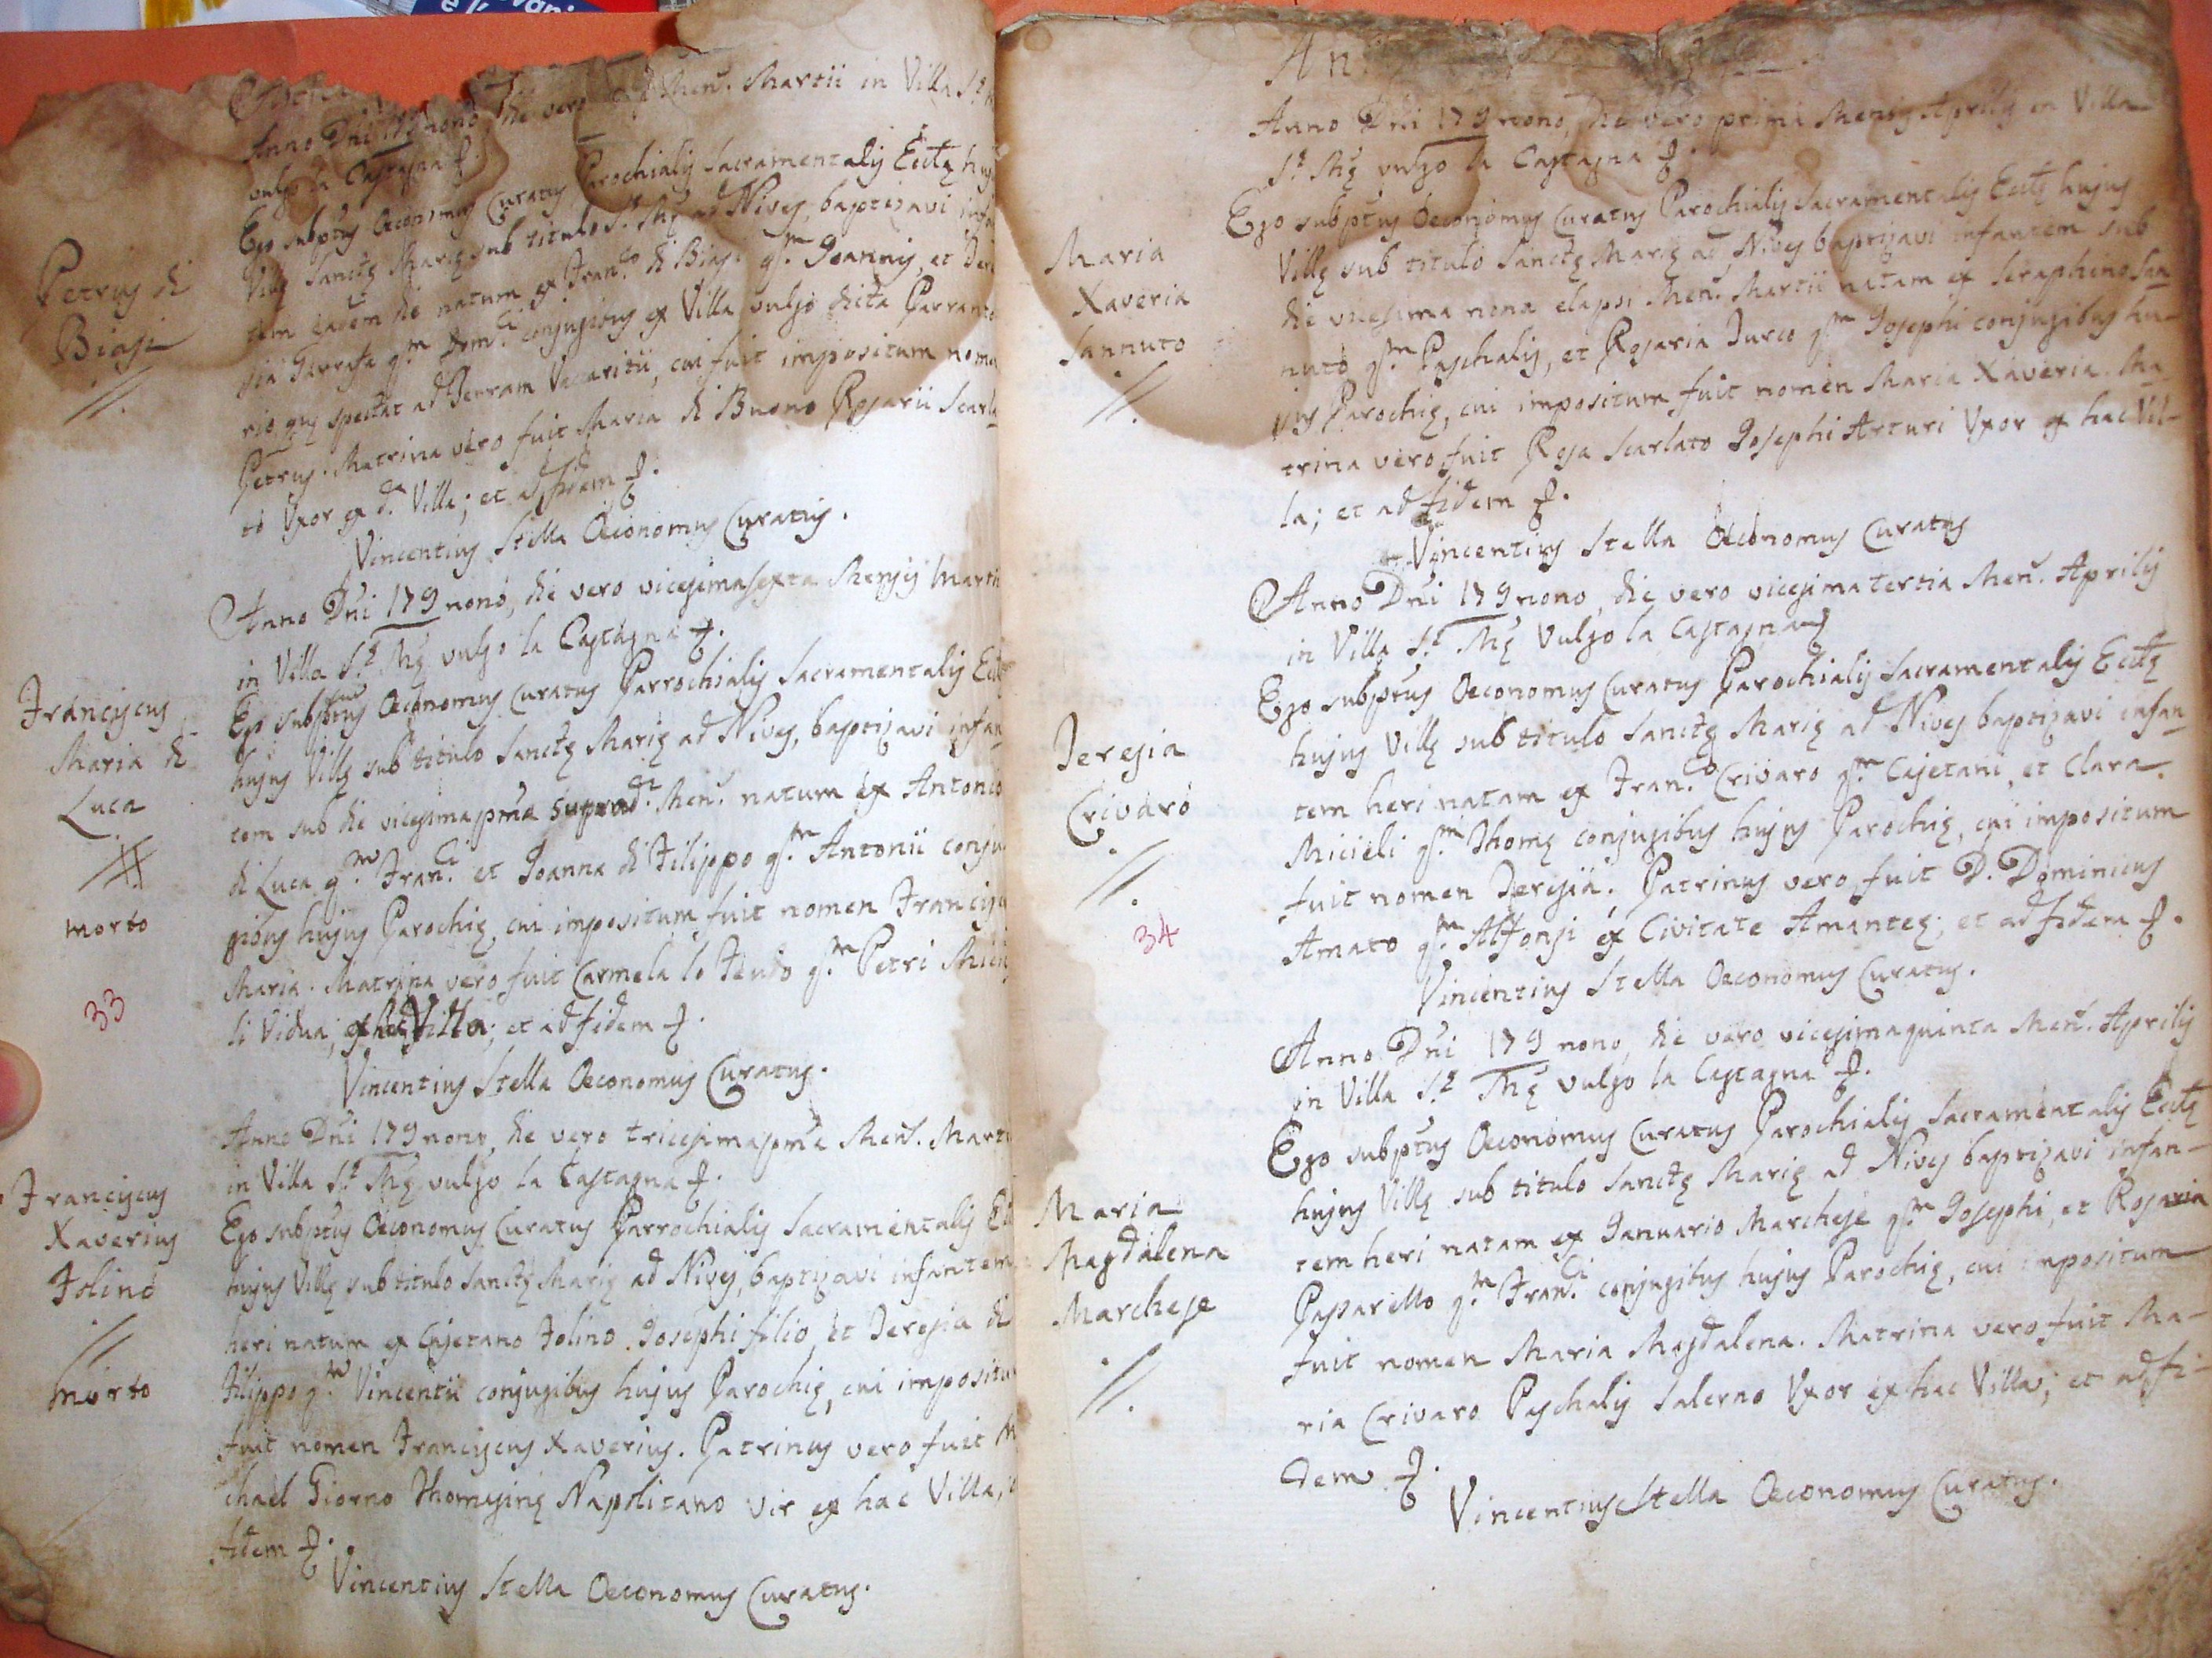 Anno Dñi 179 nono, die vero Meñ. Martii in Villa S.ę
vulgo la Castagna
Petrus di
Biasi
//.
Ego subptus Oeconomus Curatus Parochialis Sacramentalis Ecclę
Villę Sanctę Marię sub titulo S.ę Mę ad Nives, baptizavi infan
tem eadem die natum ex Fran.co di Biasi q.m Joannis, et
sia q.m Dom.ci conjugibus ex Villa vulgo dicta
rio, quę spectat ad Terram Vaccaritii, cui fuit impositum nomen
Petrus. Matrina vero fuit Maria di Buono Rosarii Scarla
to Uxor ex d.a Villa; et ad fidem
Vincentius Stella Oeconomus Curatus.
Anno Dñi 179 nono, die vero vicesimasexta Mensis Martii
in Villa S.ę Mę vulgo la Castagna
Franciscus
Maria di
Luca
morto
33
Ego subptus Oeconomus Curatus Parrochialis Sacramentalis Ecclę
hujus Villę sub titulo Sanctę Marię ad Nives, baptizavi infan
tem sub die vicesimapma suprad.ti Meñ. natum ex Antonio
di Luca q.m Fran.ci et Joanna di Filippo q.m Antonii conju
gibus hujus Parochię, cui impositum fuit nomen Franciscus
Maria. Matrina vero fuit Carmela lo Feudo q.m Petri
li Vidua, ex hac Villa; et ad fidem
Vincentius Stella Oeconomus Curatus.
Anno Dñi 179 nono, die vero tricesimapma Meñ. Martii
in Villa S.ę Mę vulgo la Castagna
Franciscus
Xaverius
Folino
//
morto
Ego subptus Oeconomus Curatus Parrochialis Sacramentalis
hujus Villę sub titulo Sanctę Marię ad Nives, baptizavi infantem
heri natum ex Cajetano Folino Josephi filio, et Teresia di
Filippo q.m Vincentii conjugibus hujus Parochię, cui impositum
fuit nomen Franciscus Xaverius. Patrinus vero fuit Mi
chael Giorno Thomasinę Napolitano vir ex hac Villa,
fidem
Vincentius Stella Oeconomus Curatus.
Anno Dñi 179 nono, die vero prima Mensis Aprilis in Villa
S.ę Mę vulgo la Castagna
Maria
Xaveria
Sannuto
//.
Ego subptus Oeconomus Curatus Parochialis Sacramentalis Ecclę hujus
Villę sub titulo Sanctę Marię ad Nives baptizavi infantem sub
die vicesima nona elapsi Meñ. Martii natam ex Seraphino San
nuto q.m Paschalis, et Rosaria Turco q.m Josephi conjugibus hu-
jus Parochię, cui impositum fuit nomen Maria Xaveria. Ma
trina vero fuit Rosa Scarlato Josephi Arturi Uxor ex hac Vil-
la; et ad fidem
Vincentius Stella Oeconomus Curatus
Anno Dñi 179 nono, die vero vicesimatertia Meñ. Aprilis
in Villa S.ę Mę vulgo la Castagna
Teresia
Crivaro
//.
34
Ego subptus Oeconomus Curatus Parochialis Sacramentalis Ecclę
hujus Villę sub titulo Sanctę Marię ad Nives baptizavi infan
tem heri natam ex Fran.co Crivaro q.m Cajetani, et Clara
Micieli q.m Thomę conjugibus hujus Parochię, cui impositum
fuit nomen Teresia. Patrinus vero fuit D. Dominicus
Amato q.m Alfonsi ex Civitate Amanteę; et ad fidem
Vincentius Stella Oeconomus Curatus.
Anno Dñi 179 nono, die vero vicesimaquinta Meñ. Aprilis
in Villa S.ę Mę vulgo la Castagna
Maria
Magdalena
Marchese
//.
Ego subptus Oeconomus Curatus Parochialis Sacramentalis Ecclę
hujus Villę sub titulo Sanctę Marię ad Nives baptizavi infan-
tem heri natam ex Januario Marchese q.m Josephi, et Rosaria
Passarello q.m Fran.ci conjugibus hujus Parochię, cui impositum
fuit nomen Maria Magdalena. Matrina vero fuit Ma-
ria Crivaro Paschalis Salerno Uxor ex hac Villa; et ad fi-
dem
Vincentius Stella Oeconomus Curatus.